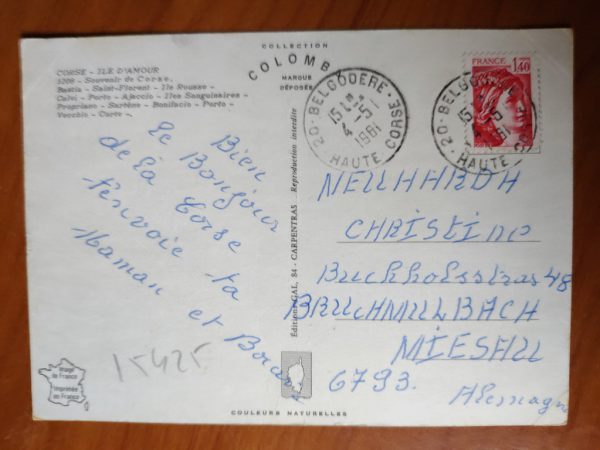 COLLECTION
COLOMB
MARQUE
DÉPOSÉE
CORSE - ILE D'AMOUR
3209 - Souvenir de Corse.
Bastia - Saint-Florent - Ile Rousse -
Calvi - Porto - Ajaccio - Iles Sanguinaires -
Propriano - Sartène - Bonifacio - Porto -
Vecchio - Carte -.
Bien
le Bonjour
de la Corse
t'envoie ta
Maman et
15425
Image
de France
Imprimée
en France
Editions GAL, 84 - CARPENTRAS
Reproduction interdite
COULEURS NATURELLES
20 - BELGODERE
15 H
4 - 5
1981
HAUTE CORSE
FRANCE
1,40
20 - BELGODERE
15 H
4 - 5
1981
HAUTE CORSE
NEUHARDH
CHRISTINE
Buchholsstras 48
BRUCHMULBACH
MIESAU
6793.
Alemagne